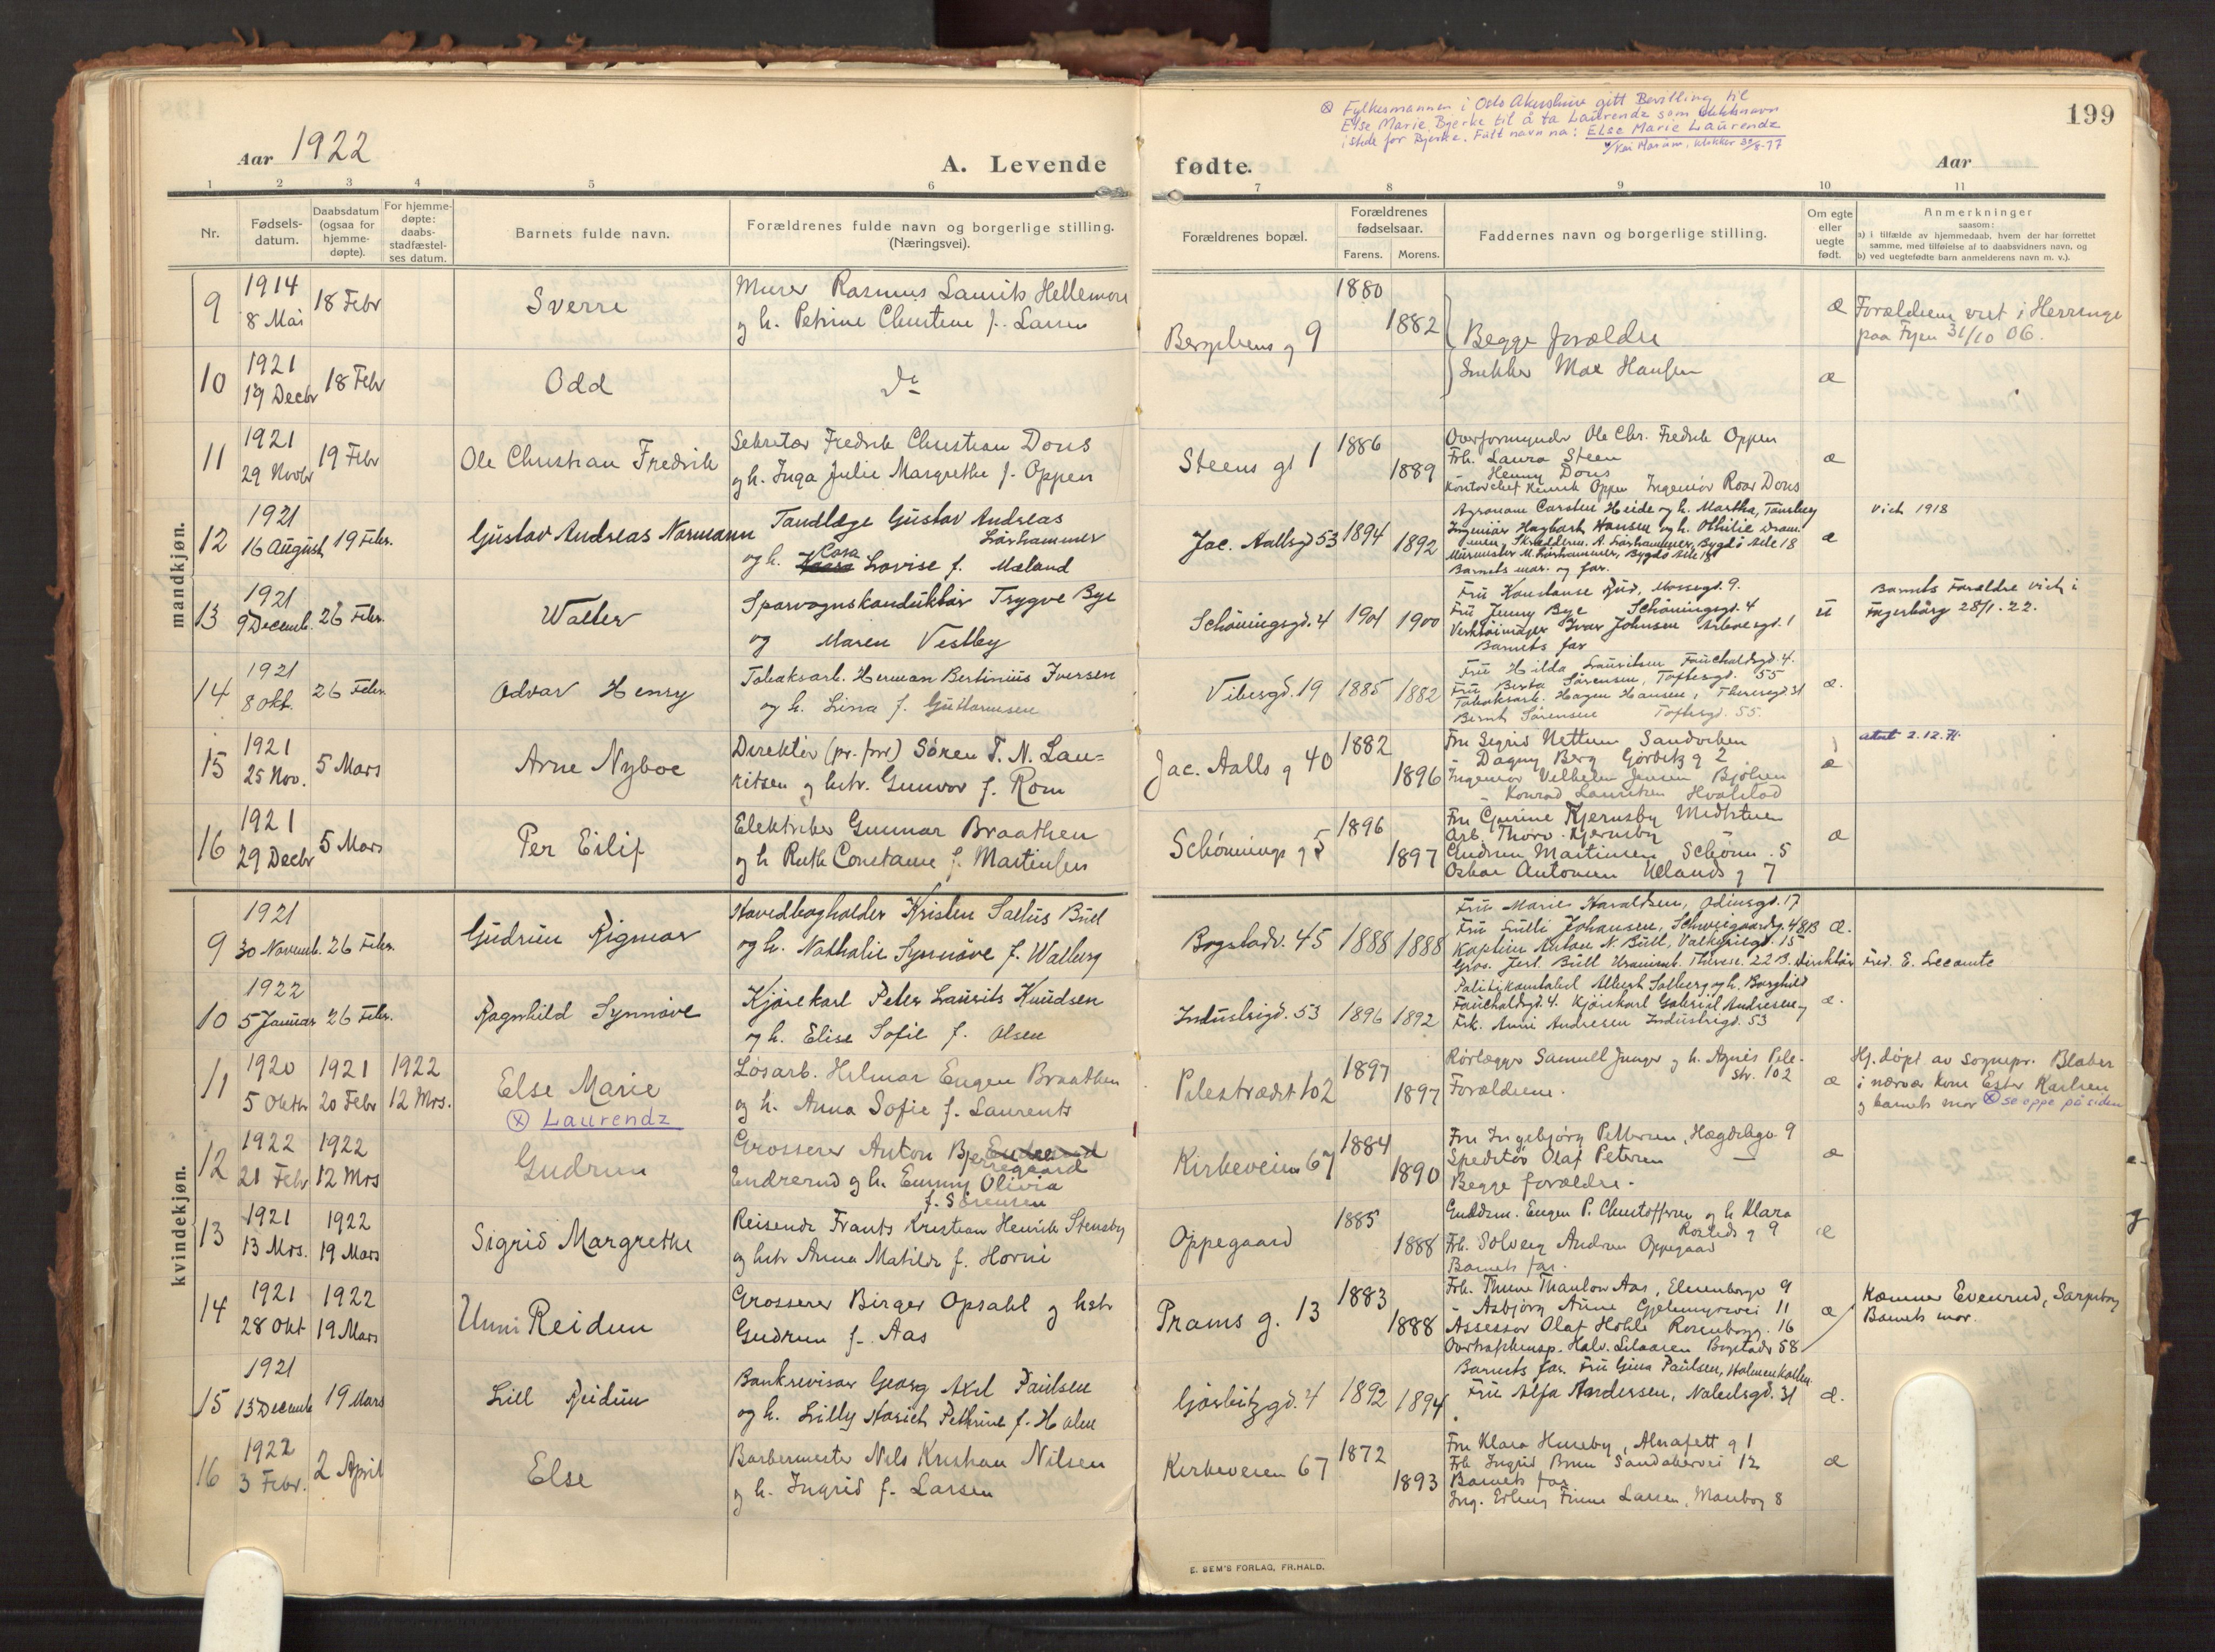 Aar 1922
A. Levende
1 2 3 4 5 6
Nr.
Fødsels-
datum.
Daabsdatum
(ogsaa for
hjemme-
døpte).
For hjemme-
døpte:
daabs-
stadfæstel-
ses datum.
Barnets fulde navn.
Forældrenes fulde navn og borgerlige stilling.
(Næringsvei).
mandkjøn.
9 1914 8 Mai 18 Febr Sverre
Murer Rasmus Laurits
og h. Petrine Christine f. Larsen
10 1921 19 Decbr 18 Febr Odd do
11 1921 29 Novbr 19 Febr Ole Christian Fredrik
Sekretær Fredrik Christian Dons
og h. Inga Julie Margrethe f. Oppen
12 1921 16 August 19 Febr. Gustav Andreas Normann
Tandlæge Gustav Andreas
og h. Cora Lovise f. Mæland
13 1921 9 Decemb. 26 Febr. Walter
Sporvognskonduktør Trygve Bye
og Maren Vestby
14 1921 8 Okt. 26 Febr. Odvar Henry
Tobaksarb. Herman Bertinius Iversen
og h. Lina f. Guttormsen
15 1921 25 Nov. 5 Mars Arne Nyboe
Direktør (pr. for) Søren T. N. Lau=
ritsen og hstr. Gunvor f. Rom
16 1921 29 Decbr 5 Mars Per Eilif
Elektriker Gunnar Braathen
og h Ruth Constance f. Martinsen
kvindekjøn.
9 1921 30 Novemb. 26 Febr. Gudrun Rigmor
Hovedbogholder Kristen Salius Bull
og h. Nathalie Synnøve f. Walberg
10 1922 5 Januar 26 Febr. Ragnhild Synnøve
Kjørekarl Peter Laurits Knudsen
og h. Elise Sofie f. Olsen
11 1920 5 Oktbr 1921 20 Febr 1922 12 Mrs. Else Marie
ⓧ Laurendz
Løsarb. Hilmar Eugen Braathen
og h. Anna Sofie f. Laurents
12 1922 21 Febr 1922 12 Mrs Gudrun
Grosserer Anton Bjerregaard
Endrerud og h. Emmy Olivia
f. Sørensen
13 1921 13 Mrs. 1922 19 Mars Sigrid Margrethe
Reisende Frants Kristian Henrik Stensby
og hstr Anna Matilde f. Horni
14 1921 28 Okt 1922 19 Mars Unni Reidun
Grosserer Birger Opsahl og hstr
Gudrun f. Aas
15 1921 13 Decemb 19 Mars Lill Reidun
Bankrevisor Georg Axel Paulsen
og h. Lilly Petrine f. Holm
16 1922 3 Febr. 2 April Else
Barbermester Nils Kristian Nilsen
og h. Ingrid f. Larsen
ⓧ Fylkesmannen i Oslo Akershus gitt Bevilling til
Else Marie Bjerke til å ta Laurendz som slektsnavn
istede for Bjerke. Fullt navn nå: Else Marie Laurendz
199
fødte.
Aar
7 8 9 10 11
Forældrenes bopæl.
Forældrenes
fødselsaar.
Farens. Morens.
Faddernes navn og borgerlige stilling.
Om egte
eller
uegte
født.
Anmerkninger
saasom:
a) i tilfælde av hjemmedaab, hvem der har forrettet
samme, med tilføielse af to daabsvidners navn, og
b) ved uegtefødte barn anmelderens navn m. v.).
9 1880 1882
Begge forældre
Snekker Max Hansen
æ
Forældrene viet i Herringe
paa Fyen 31/10 06.
æ
Steens gt 1 1886 1889
Overformynder Ole Chr. Fredrik Oppen
Frk. Laura Steen
Henny Dons
Kontorchef Henrik Oppen Ingeniør Roar Dons
æ
Jac. Aallsgd 53 1894 1892
Agronom Carsten Heide og h. Martha, Tønsberg
Ingeniør Hagbart Hansen og h. Othilie Dram-
men, Bygdø Alle 18
Barnets mor og far.
æ
Viet 1918
Schøningsgd. 4 1901 1900
Fru Konstanse Rud, Mossegd. 9.
Fru Jenny Bye Schøningsgd. 4
Verktøimager Ivar Johnsen
Barnets far
Barnets Forældre viet i
Fagerborg 28/1. 22.
Vibesgd. 19 1885 1882
Fru Hilda Lauritsen Fauchaldsgd. 4.
Fru Berta Sørensen, Toftesgd. 55
Tobaksarb. Hagen Hansen, Theresegd. 31
Bernt Sørensen Toftesgd. 55.
æ.
Jac. Aalls g 40 1882 1896
Fru Sigrid Nettum Sandviken
- Dagny Berg Gjørbitz g 2
Ingeniør Vilhelm Jensen Bjølsen
- Konrad Lauritzen Hvalstad
æ
attest 2.12.71.
Schønnings g 5 1896 1897
Arb. Thorv. Kjernsby
Gudrun Martinsen Schønn. 5
Oskar Antonsen Uelands g 7
æ
Bogstadv. 45 1888 1888
Fru Marie Haraldsen, Odinsgd. 17
Fru Lulli Johansen, Schweigaardsg. 48B
Kaptein Anton N. Bull, Valkyriegd. 15
æ.
direktør Fred. E. Lecomte
Industrigd. 53 1896 1892
Politikonstabel Albert Solberg og h. Borghild
Fauchaldsgd. 4. Kjørekarl Gabriel Andresen og
Frk. Anni Andresen Industrigd. 53
æ.
Pilestrædet 102 1897 1897
Rørlægger Samuel Junger og h. Agnes Pile-
str. 102
Forældrene.
æ
Hj. døpt av sognepr. Blaker
i nærvær kone Ester Karlsen
og barnets mor ⓧ se oppe på siden
Kirkeveien 67 1884 1890
Fru Ingebjørg Pettersen, Hægdehgv 9
Speditør Olaf Petersen —
Begge forældre.
æ
Oppegaard 1885 1888
Guldsm. Eugen P. Christoffersen og h Klara
Rosteds g 9
Frk. Solveig Andersen Oppegaard
Barnets far.
æ
Prams g. 13 1883 1888
Frk. Thune Thaulow Aas, 9
- Asbjørg Aune Gjetemyrsvei 11
Assessor Olaf Hohle Rosenborgg. 16
Bogstadv 58
Barnets far.
æ
Kømner Evenrud, Sarpsborg
Barnets mor.
Gjørbitzgd. 4 1892 1894
Fru Gina Paulsen, Holmenkollen.
Fru Alfa Andersen, 31
æ.
Kirkeveien 67 1872 1893
Fru Klara Huseby, Almafett g 1
Frk Ingrid Bruun Sandakervei 12
Barnets far
Ing. Erling Finne Larsen, 8
æ
E. SEM'S FORLAG, FR.HALD.